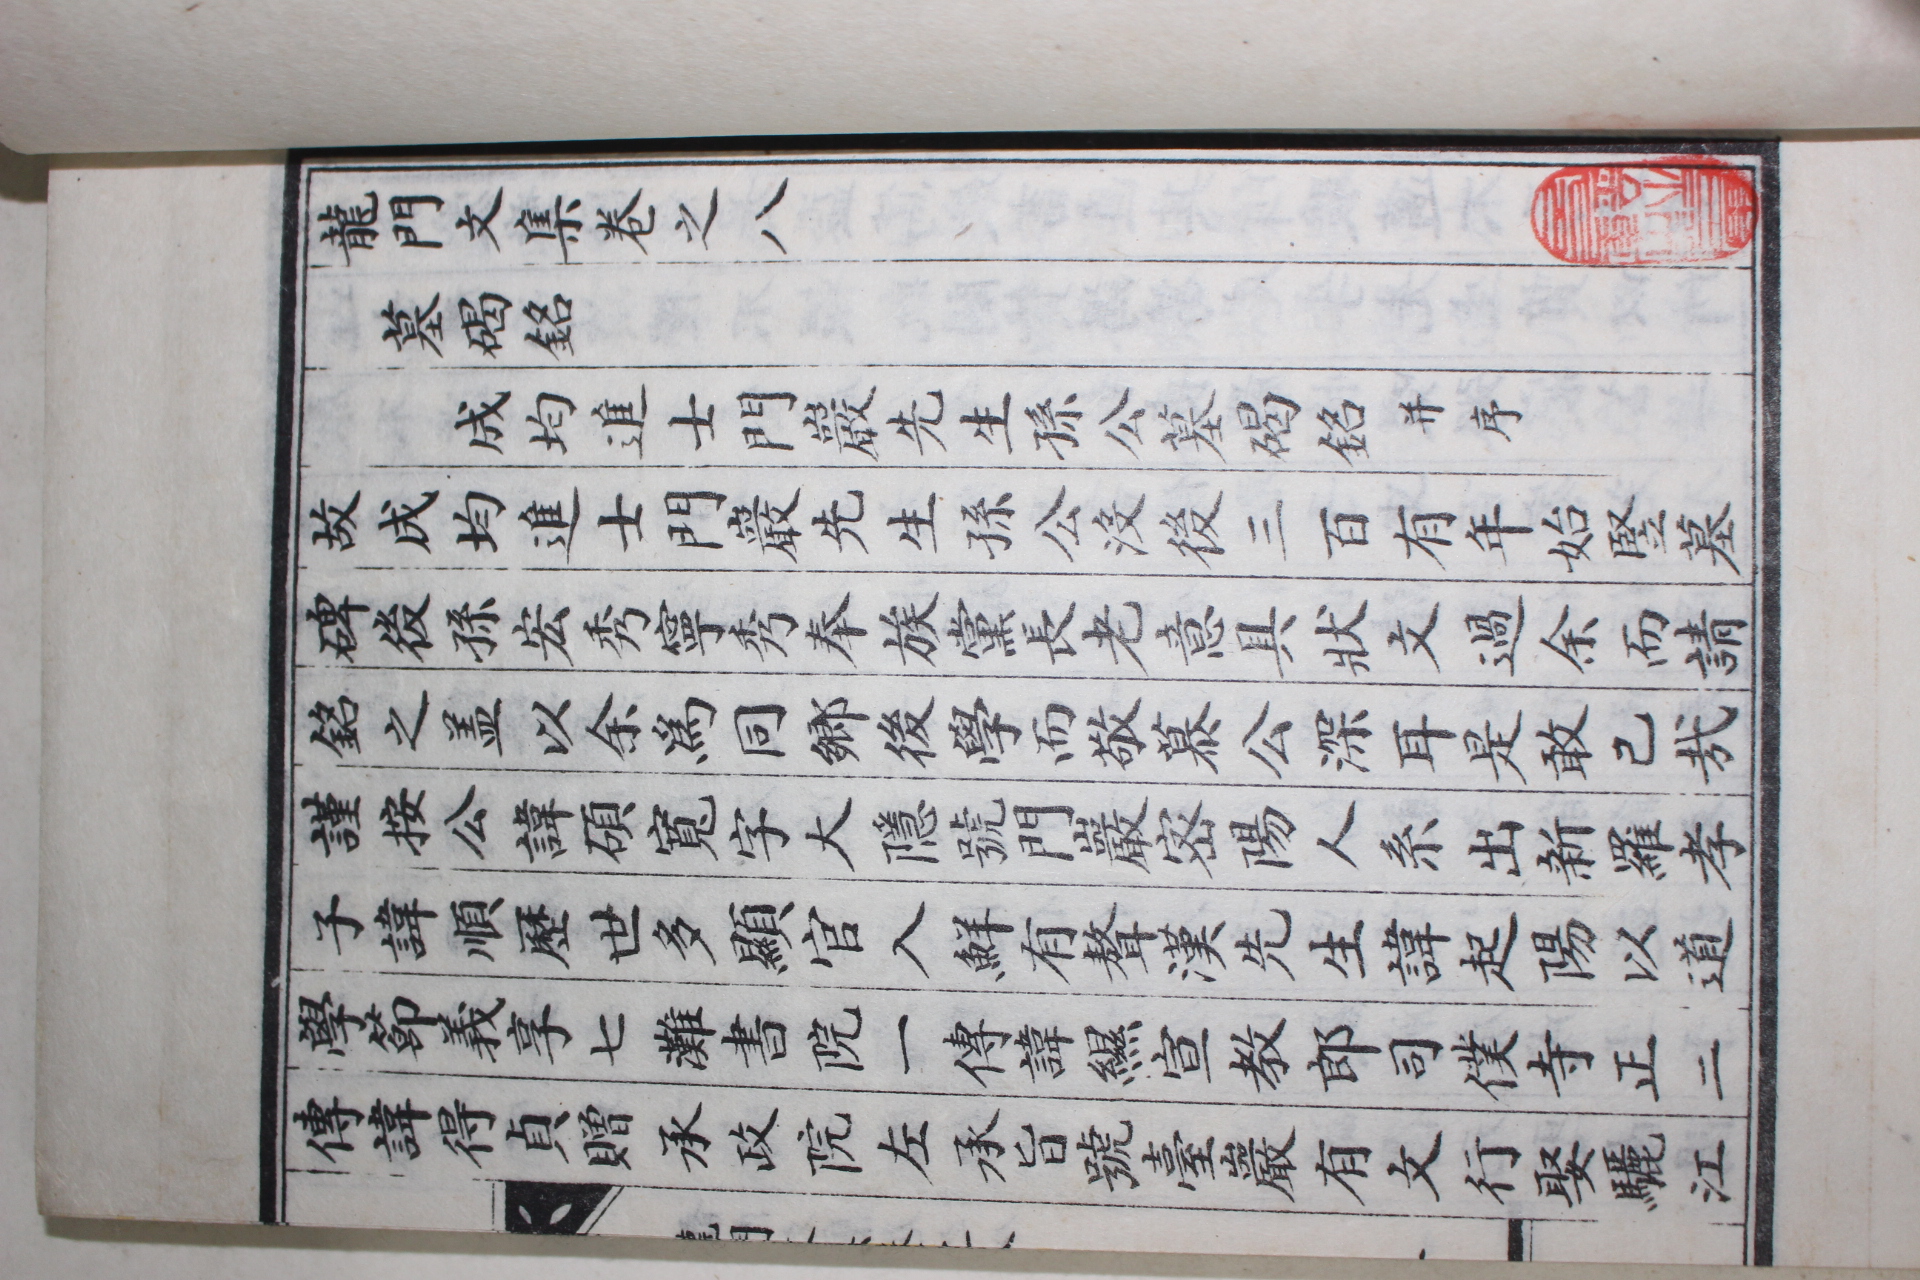 龍門文集卷之八
墓碣銘
成均進士門巖先生孫公墓碣銘 并序
故成均進士門巖先生孫公沒後三百有年始竪墓
碑後孫宏秀寧秀奉族黨長老意具狀文過余而請
銘之盖以余爲同鄉後學而敬慕公深耳是敢已哉
謹按公諱碩寬字大隱號門巖密陽人系出新羅孝
子諱順歷世多顯官入鮮有聱漢先生諱起陽以道
學節義享七灘書院一傳諱緦宣教郎司僕寺正二
傳諱得貞贈承政院左承旨號臺巖有文行娶驪江